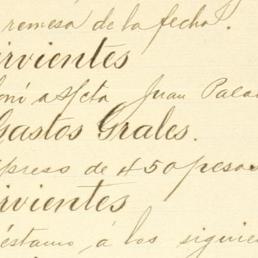 remesa de la fecha.
rvientes
oní a s/cta Juan Pala
Gastos Grales.
xpreso de 450 pesos
rvientes
éstamo á los siguie